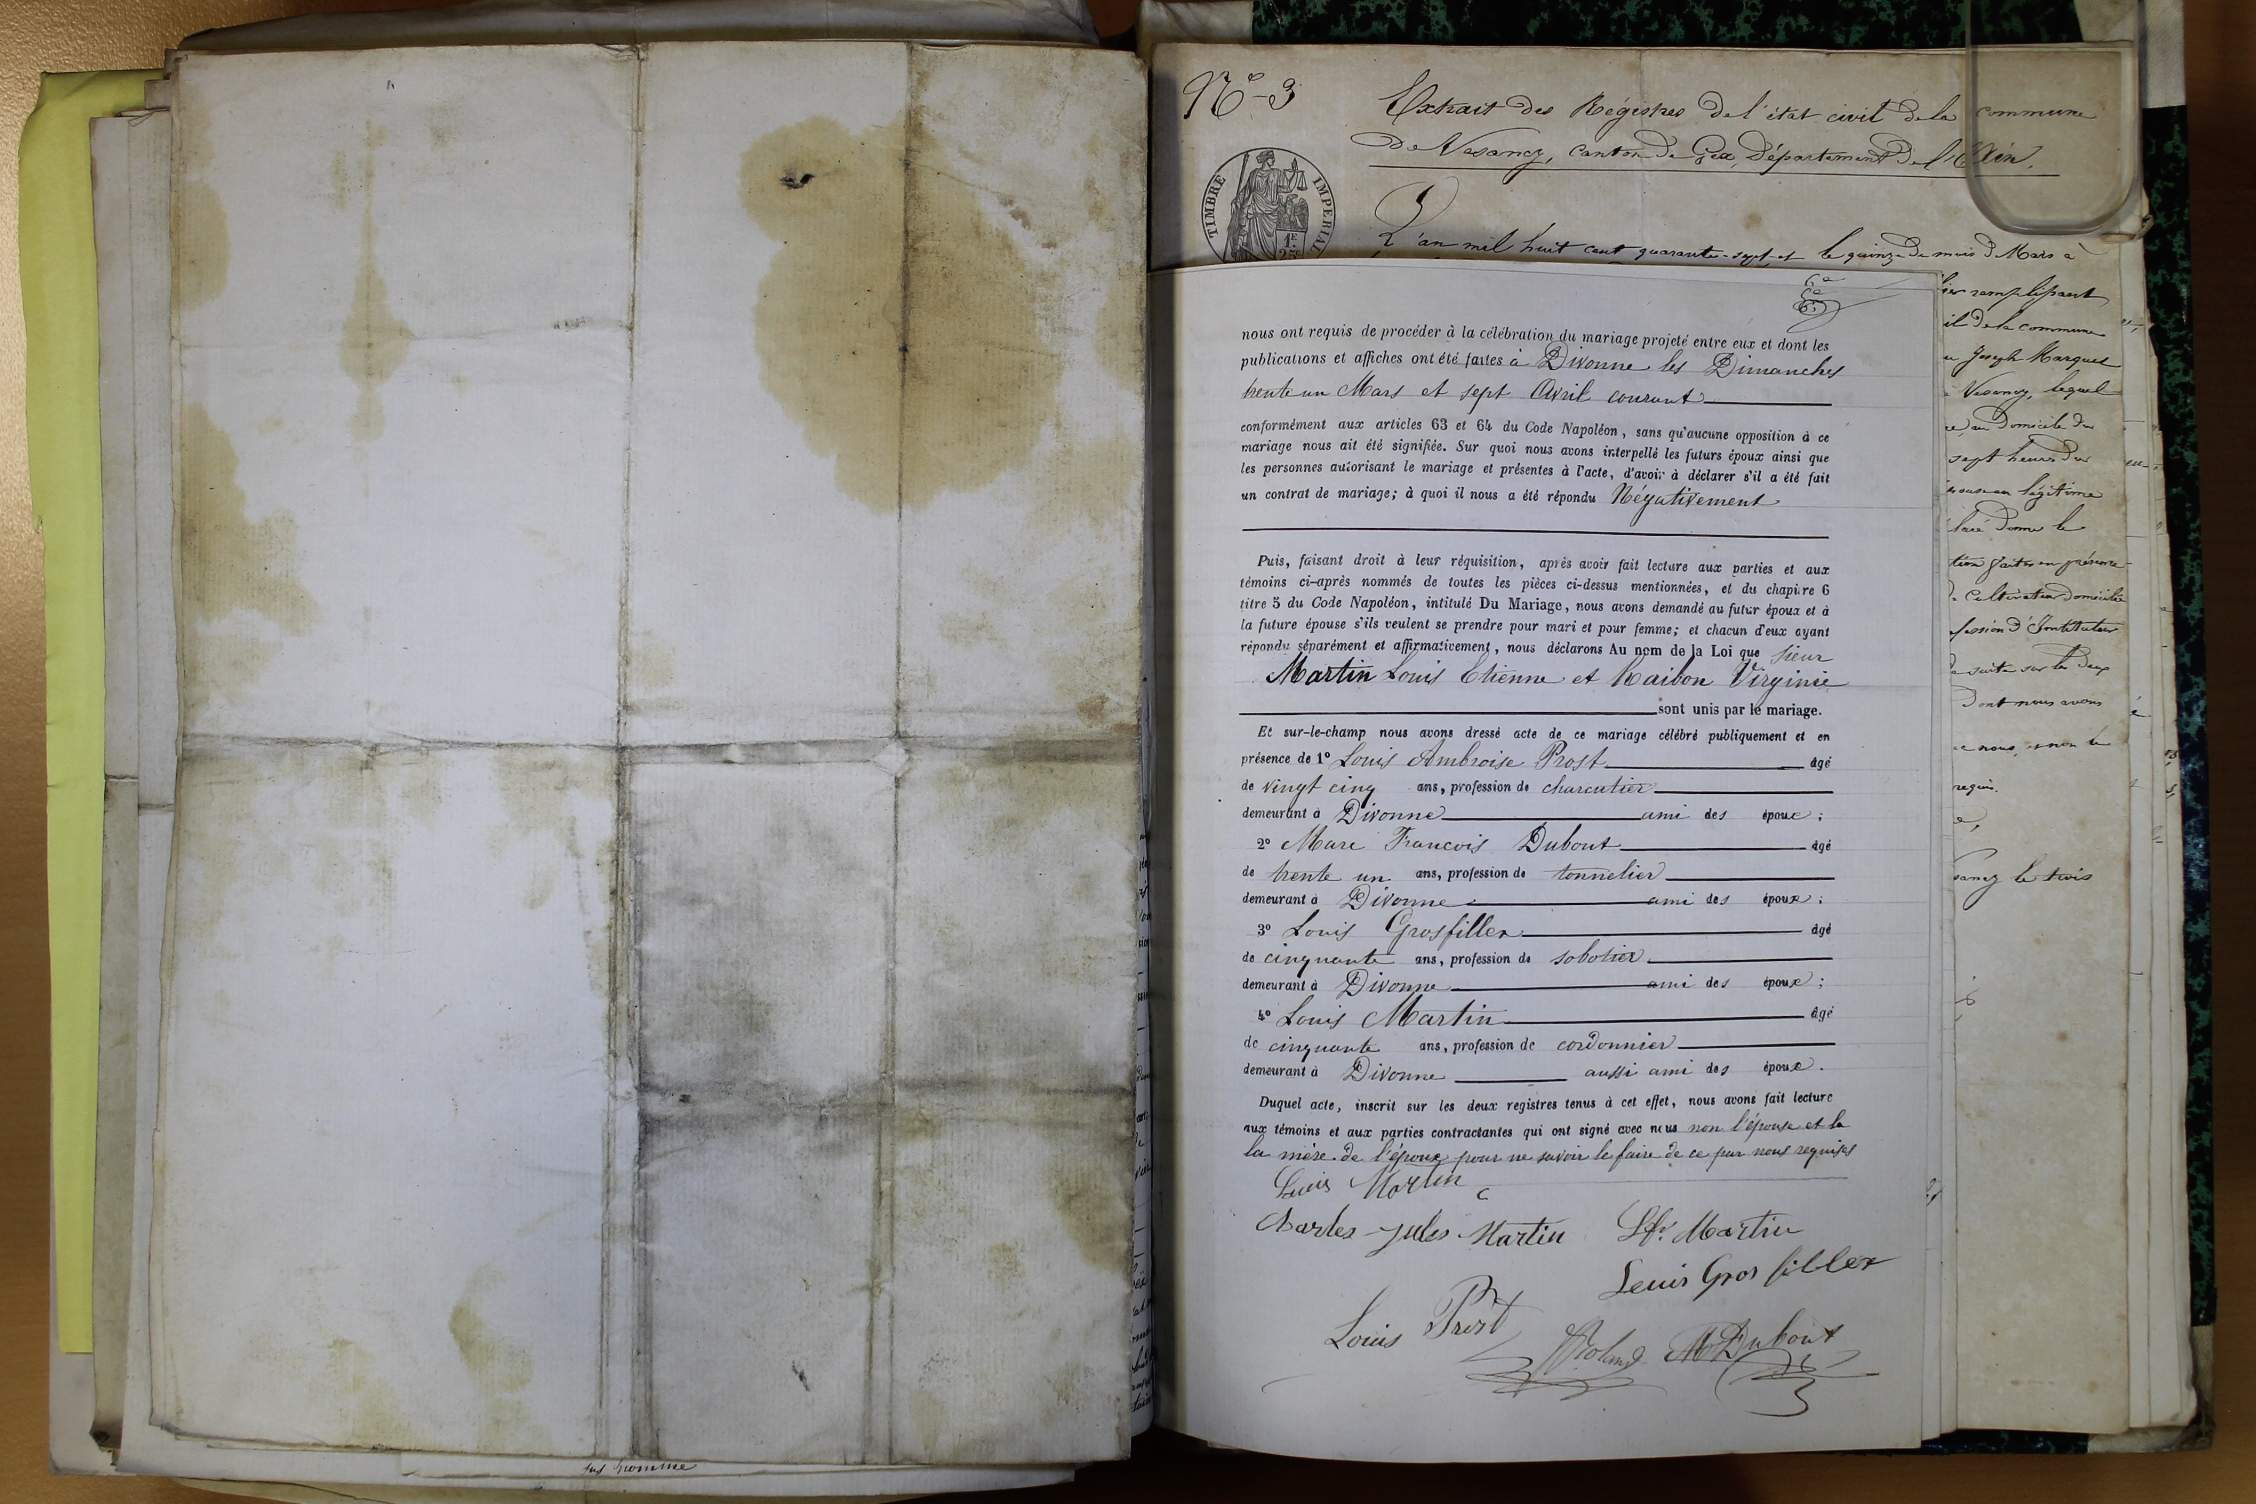 N° 3
Extrait des Régistres de l'état civil de la commune
de Vesancy, canton de Gex, Département de l'Ain.
TIMBRE IMPERIAL
1F
25c
L'an mil huit cent quarante-sept et le quinze du mois de Mars à
nous ont requis de procéder à la célébration du mariage projeté entre eux et dont les
publications et affiches ont été faites à Divonne les Dimanches
trente un Mars et sept Avril courant
conformément aux articles 63 et 64 du Code Napoléon, sans qu'aucune opposition à ce
mariage nous ait été signifiée. Sur quoi nous avons interpellé les futurs époux ainsi que
les personnes autorisant le mariage et présentes à l'acte, d'avoir à déclarer s'il a été fait
un contrat de mariage; à quoi il nous a été répondu Négativement
Puis, faisant droit à leur réquisition, après avoir fait lecture aux parties et aux
témoins ci-après nommés de toutes les pièces ci-dessus mentionnées, et du chapitre 6
titre 5 du Code Napoléon, intitulé Du Mariage, nous avons demandé au futur époux et à
la future épouse s'ils veulent se prendre pour mari et pour femme; et chacun d'eux ayant
répondu séparément et affirmativement, nous déclarons Au nom de la Loi que sieur
Martin Louis Etienne et Raibon Virginie
sont unis par le mariage.
Et sur-le-champ nous avons dressé acte de ce mariage célébré publiquement et en
présence de 1° Louis Ambroise Prost âgé
de vingt cinq ans, profession de charcutier
demeurant à Divonne ami des époux;
2° Marc François Dubout âgé
de trente un ans, profession de tonnelier
demeurant à Divonne ami des époux;
3° Louis Grosfiller âgé
de cinquante ans, profession de sobotier
demeurant à Divonne ami des époux;
4° Louis Martin âgé
de cinquante ans, profession de cordonnier
demeurant à Divonne aussi ami des époux.
Duquel acte, inscrit sur les deux registres tenus à cet effet, nous avons fait lecture
aux témoins et aux parties contractantes qui ont signé avec nous non l'épouse et la
la mère de l'époux pour ne savoir le faire de ce par nous requises
Louis Martin
Charles Jules Martin
Martin
Louis Gros filler
Louis Prost
Roland
M Dubout
remplissant
il de la commune
Joseph Marquet
Vesancy, lequel
au domicile du
sept heures du
légitime
donné le
faites en présence
Cultivateur domicilié
d'Instituteur
suite sur les deux
Dont nous avons
nous
requis.
le trois
homme